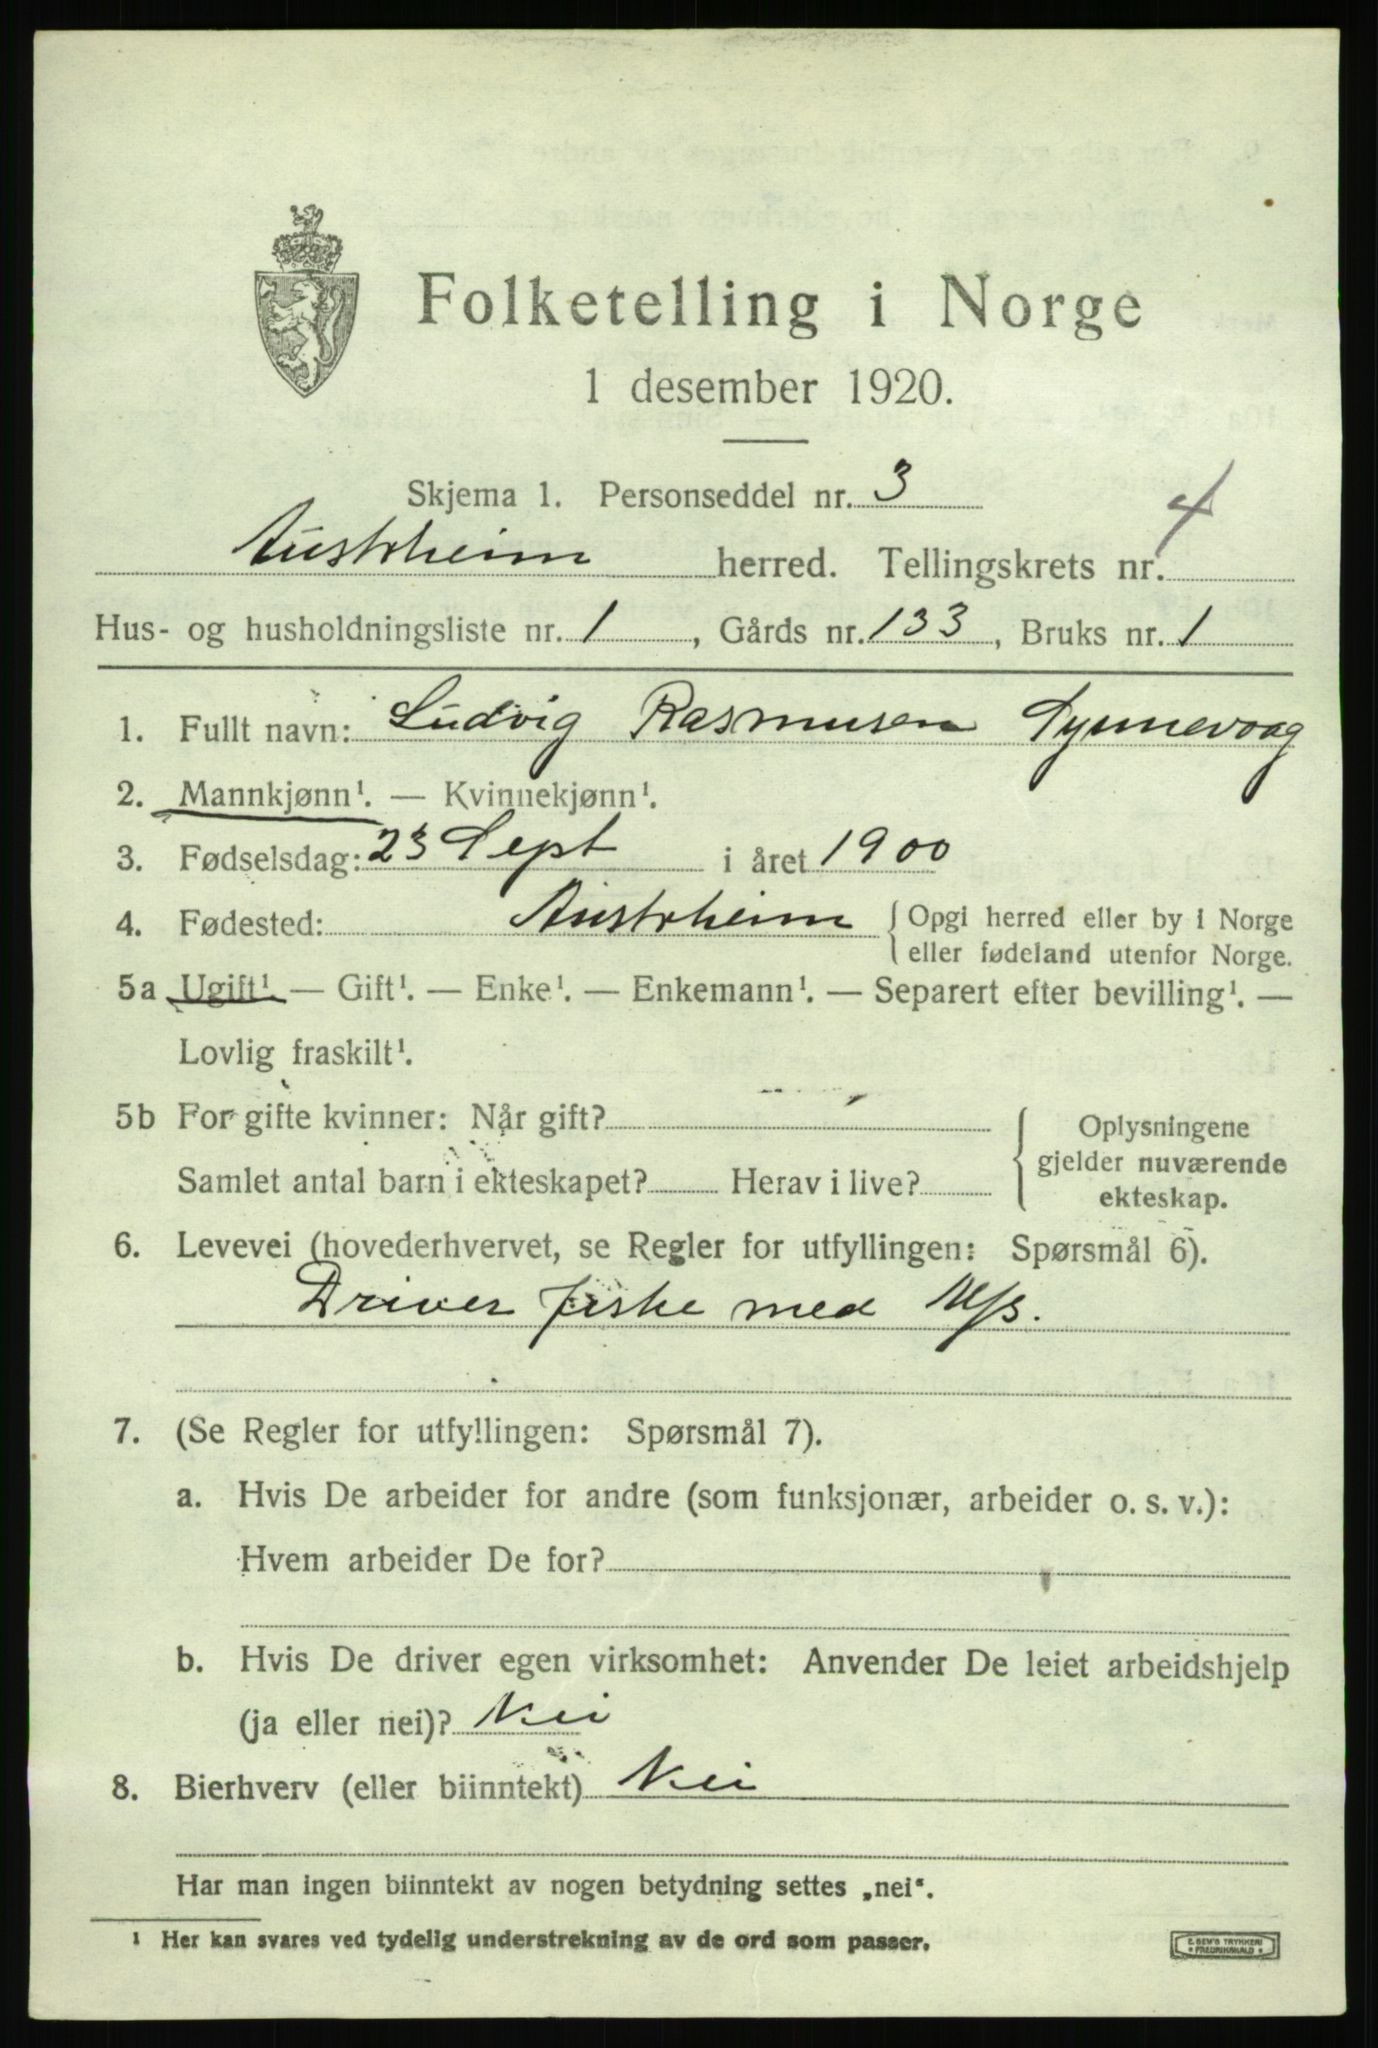 Folketelling i Norge
1 desember 1920.
Skjema 1. Personseddel nr. 3
Austrheim herred. Tellingskrets nr. 4
Hus- og husholdningsliste nr. 1, Gårds nr. 133, Bruks nr. 1
1. Fullt navn: Ludvig Rasmusen Synnevaag
2. Mannkjønn¹. — Kvinnekjønn¹.
3. Fødselsdag: 23 Sept i året 1900
4. Fødested: Austrheim { Opgi herred eller by i Norge
eller fødeland utenfor Norge.
5a Ugift¹. — Gift¹. — Enke¹. — Enkemann¹. — Separert efter bevilling¹. —
Lovlig fraskilt¹.
5b For gifte kvinner: Når gift?
Samlet antal barn i ekteskapet? Herav i live?
{ Oplysningene
gjelder nuværende
ekteskap.
6. Levevei (hovederhvervet, se Regler for utfyllingen: Spørsmål 6).
Driver fiske med M/B.
7. (Se Regler for utfyllingen: Spørsmål 7).
a. Hvis De arbeider for andre (som funksjonær, arbeider o. s. v.):
Hvem arbeider De for?
b. Hvis De driver egen virksomhet: Anvender De leiet arbeidshjelp
(ja eller nei)? Nei
8. Bierhverv (eller biinntekt) Nei
Har man ingen biinntekt av nogen betydning settes „nei“.
¹ Her kan svares ved tydelig understrekning av de ord som passer.
E. SEM'S TRYKKERI
* FREDRIKSHALD *